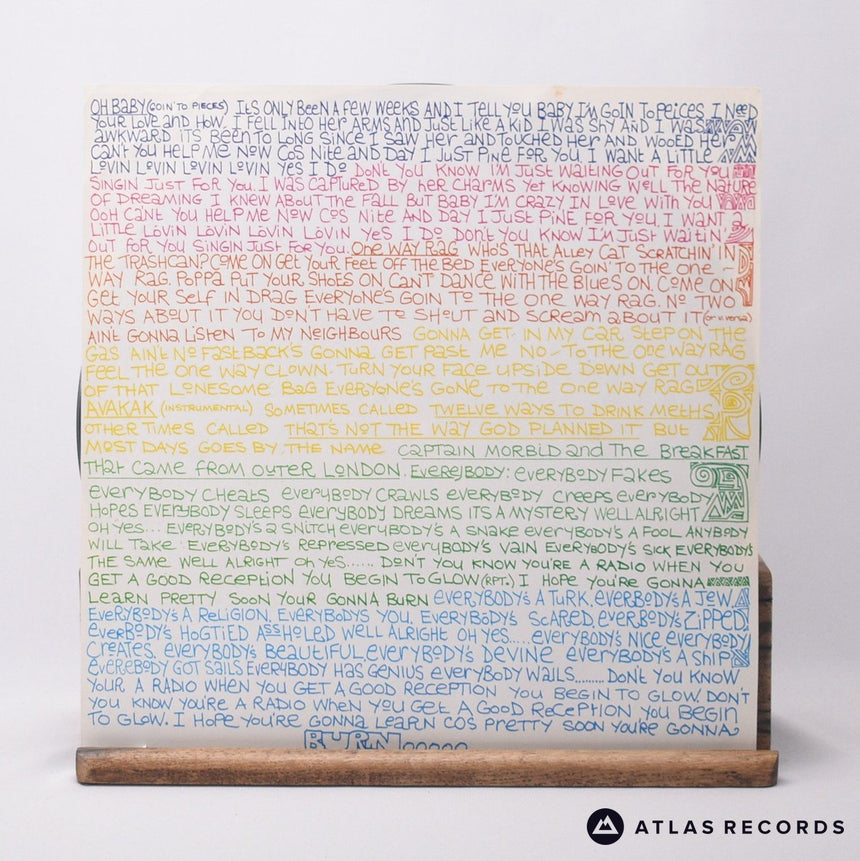 OH BABY (GOIN' TO PIECES) ITS ONLY BEEN A FEW WEEKS AND I TELL YOU BABY I'M GOIN TO PEICES I NEED
YOUR LOVE AND HOW, I FELL INTO HER ARMS AND JUST LIKE A KID I WAS SHY AND I WAS
AWKWARD ITS BEEN TO LONG SINCE I SAW HER AND TOUCHED HER AND WOOED HER
CAN'T YOU HELP ME NOW COS NITE AND DAY I JUST PINE FOR YOU, I WANT A LITTLE
LOVIN LOVIN LOVIN LOVIN YES I DO DON'T YOU KNOW I'M JUST WAITING OUT FOR YOU
SINGIN JUST FOR YOU. I WAS CAPTURED BY HER CHARMS YET KNOWING WELL THE NATURE
OF DREAMING I KNEW ABOUT THE FALL BUT BABY I'M CRAZY IN LOVE WITH YOU
OOH CANT YOU HELP ME NOW COS NITE AND DAY I JUST PINE FOR YOU, I WANT a
LITTLE LOVIN LOVIN LOVIN LOVIN YES I DO DON'T YOU KNOW I'M JUST WAITIN'
OUT FOR YOU SINGIN JUST FOR YOU. ONE WAY RAG WHO'S THAT ALLEY CAT SCRATCHIN' IN
THE TRASHCAN? COME ON GET YOUR FEET OFF THE BED EVERYONE'S GOIN' TO THE ONE –
WAY RAG. POPPA PUT YOUR SHOES ON CAN'T DANCE WITH THE BLUES ON. COME ON
GET YOUR SELF IN DRAG EVERYONE'S GOIN TO THE ONE WAY RAG. NO TWO
WAYS ABOUT IT YOU DON'T HAVE TO SHOUT AND SCREAM ABOUT IT (or v. versa)
AIN'T GONNA LISTEN TO MY NEIGHBOURS GONNA GET IN MY CAR STEP ON THE
GAS AIN'T NO FASTBACK'S GONNA GET PAST ME NO - TO THE ONE WAY RAG
FEEL THE ONE WAY CLOWN. TURN YOUR FACE UPSIDE DOWN GET OUT
OF THAT LONESOME BAG EVERYONE'S GONE TO THE ONE WAY RAG
AVAKAK (INSTRUMENTAL) SOMETIMES CALLED TWELVE WAYS TO DRINK METHS,
OTHER TIMES CALLED THAT'S NOT THE WAY GOD PLANNED IT BUT
MOST DAYS GOES BY THE NAME CAPTAIN MORBID AND THE BREAKFAST
THAT CAME FROM OUTER LONDON. EVEREJBODY: EVERYBODY FAKES
EVERYBODY CHEATS EVERYBODY CRAWLS EVERYBODY CREEPS EVERYBODY
HOPES EVERYBODY SLEEPS EVERYBODY DREAMS ITS A MYSTERY WELL ALRIGHT
OH YES... EVERYBODY'S A SNITCH EVERYBODY'S A SNAKE EVERYBODY'S A FOOL ANYBODY
WILL TAKE EVERYBODY'S REPRESSED EVERYBODY'S VAIN EVERYBODY'S SICK EVERYBODY'S
THE SAME WELL ALRIGHT OH YES...... DON'T YOU KNOW YOU'RE A RADIO WHEN YOU
GET A GOOD RECEPTION YOU BEGIN TO GLOW (RPT.) I HOPE YOU'RE GONNA
LEARN PRETTY SOON YOUR GONNA BURN EVERYBODY'S A TURK, EVERBODY'S A JEW,
EVERYBODY'S A RELIGION, EVERYBODYS YOU, EVERYBODY'S SCARED, EVERBODY'S ZIPPED,
EVERBODY'S HOGTIED ASSHOLED WELL ALRIGHT OH YES..... EVERYBODY'S NICE EVERYBODY
CREATES, EVERYBODY'S BEAUTIFUL, EVERYBODY'S DEVINE EVERYBODY'S A SHIP,
EVEREBODY GOT SAILS EVERYBODY HAS GENIUS EVERYBODY WAILS......... DON'T YOU KNOW
YOUR A RADIO WHEN YOU GET A GOOD RECEPTION YOU BEGIN TO GLOW. DON'T
YOU KNOW YOU'RE A RADIO WHEN YOU GET A GOOD RECEPTION YOU BEGIN
TO GLOW. I HOPE YOU'RE GONNA LEARN COS PRETTY SOON YOU'RE GONNA
BURN
ATLAS RECORDS